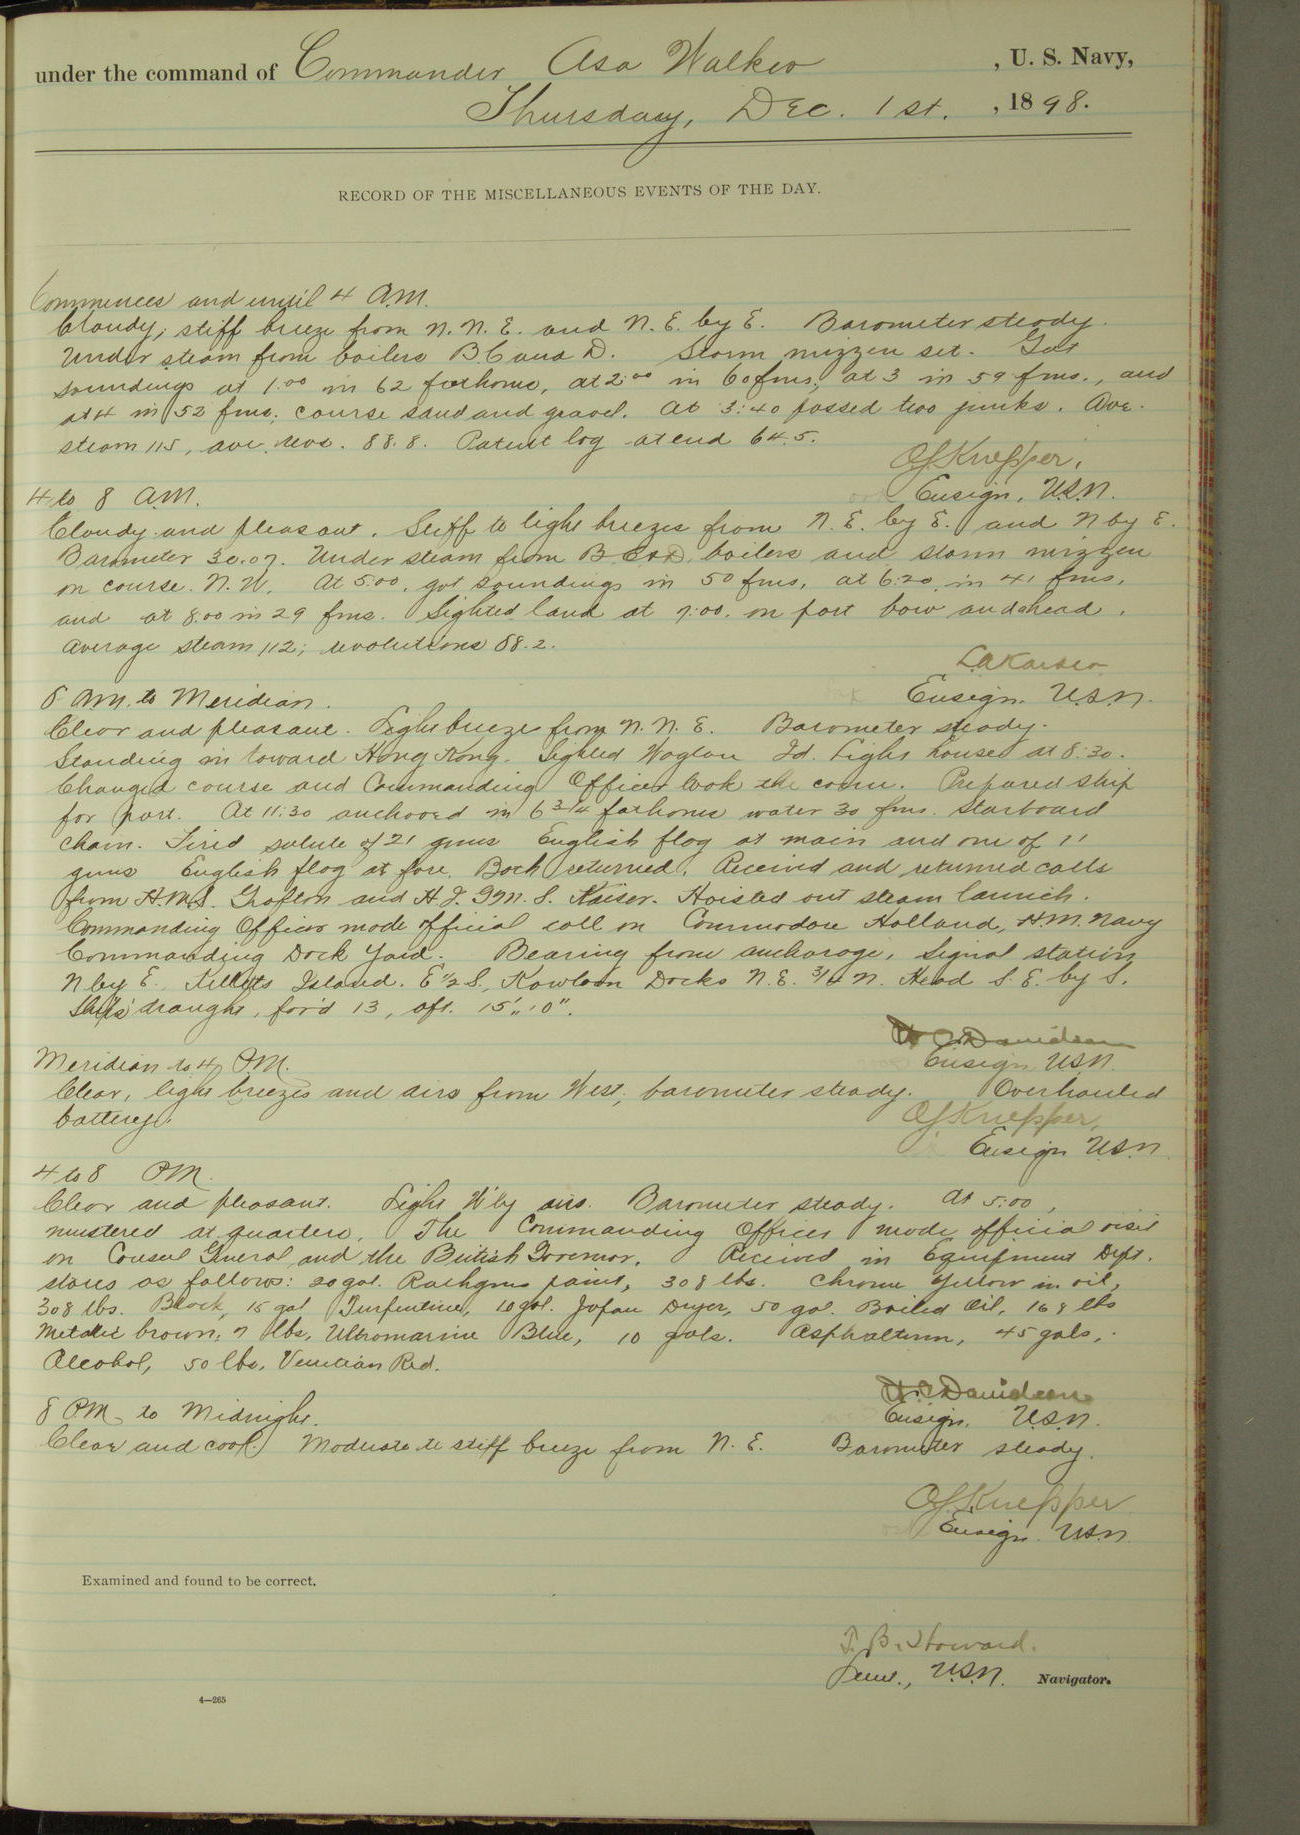 under the command of Commander Asa Walker , U. S. Navy,
Thursday, Dec. 1st. , 1898.
RECORD OF THE MISCELLANEOUS EVENTS OF THE DAY.
Commences and until 4 A.M.
Cloudy, stiff breeze from N. N. E. and N. E. by E. Barometer steady.
Under steam from boilers B. C and D. Storm mizzen set. Got
soundings at 1:00 in 62 fathoms, at 2:00 in 60 fms, at 3 in 59 fms., and
at 4 in 52 fms; course sand and gravel. At 3:40 passed two junks. Ave.
steam 115, ave. revs. 88.8. Patent log at end 64.5.
OJ Knepper,
Ensign, U.S.N.
4 to 8 A.M.
Cloudy and pleasant. Stiff to light breezes from N. E. by E. and N by E.
Barometer 30.07. Under steam from B C & D boilers and storm mizzen
on course N. W. At 5:00, got soundings in 50 fms, at 6:20 in 41 fms,
and at 8:00 in 29 fms. Sighted land at 7:00. on port bow and ahead.
Average steam 112; revolutions 88.2.
L.A Kaiser
Ensign. U.S.N.
8 A.M. to Meridian.
Clear and pleasant. Light breeze from N. N. E. Barometer steady.
Standing in toward Hong Kong. Sighted Waglan Id. Light house at 8:30.
Changed course and Commanding Officer took the conn. Prepared ship
for port. At 11:30 anchored in 6 3/4 fathoms water 30 fms. starboard
chain. Fired salute of 21 guns English flag at main and one of 11
guns English flag at fore. Both returned. Received and returned calls
from H.M.S. Grafton and H. I. G. M. S. Kaiser. Hoisted out steam launch.
Commanding Officer made official call on Commodore Holland, H.M. Navy
Commanding Dock Yard. Bearing from anchorage, Signal station
N by E. Kelletts Island. E 1/2 S., Kowloon Docks N. E. 3/4 N. Head S. E. by S.
Ship's draught, for'd 13, aft. 15',, 10".
W C Davidson
Ensign USN.
Meridian to 4 P.M.
Clear, light breezes and airs from West; barometer steady. Overhauled
battery.
OJ Knepper,
Ensign U.S.N.
4 to 8 P.M.
Clear and pleasant. Light W'ly airs. Barometer steady. At 5:00,
mustered at quarters. The Commanding Officer made official visit
on Consul General and the British Governor. Received in Equipment Dept.
stores as follows: 20 gal. Rathgens paint, 308 lbs. Chrome Yellow in oil,
308 lbs. Black, 15 gal Turpentine, 10 gal. Japan Dryer, 50 gal. Boiled Oil, 168 lbs
Metalic brown, 7 lbs, Ultramarine Blue, 10 gals. Asphaltum, 45 gals,
Alcohol, 50 lbs, Venetian Red.
W. C Davidson
Ensign. U.S.N.
8 P.M. to Midnight.
Clear and cool. Moderate to stiff breeze from N. E. Barometer steady.
OJ Knepper
Ensign. U.S.N.
Examined and found to be correct.
T. B. Howard.
Lieut., U.S.N. Navigator.
4—265